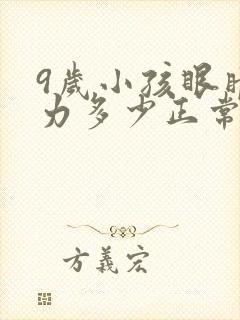 9歲小孩眼
力多少正常
方義宏